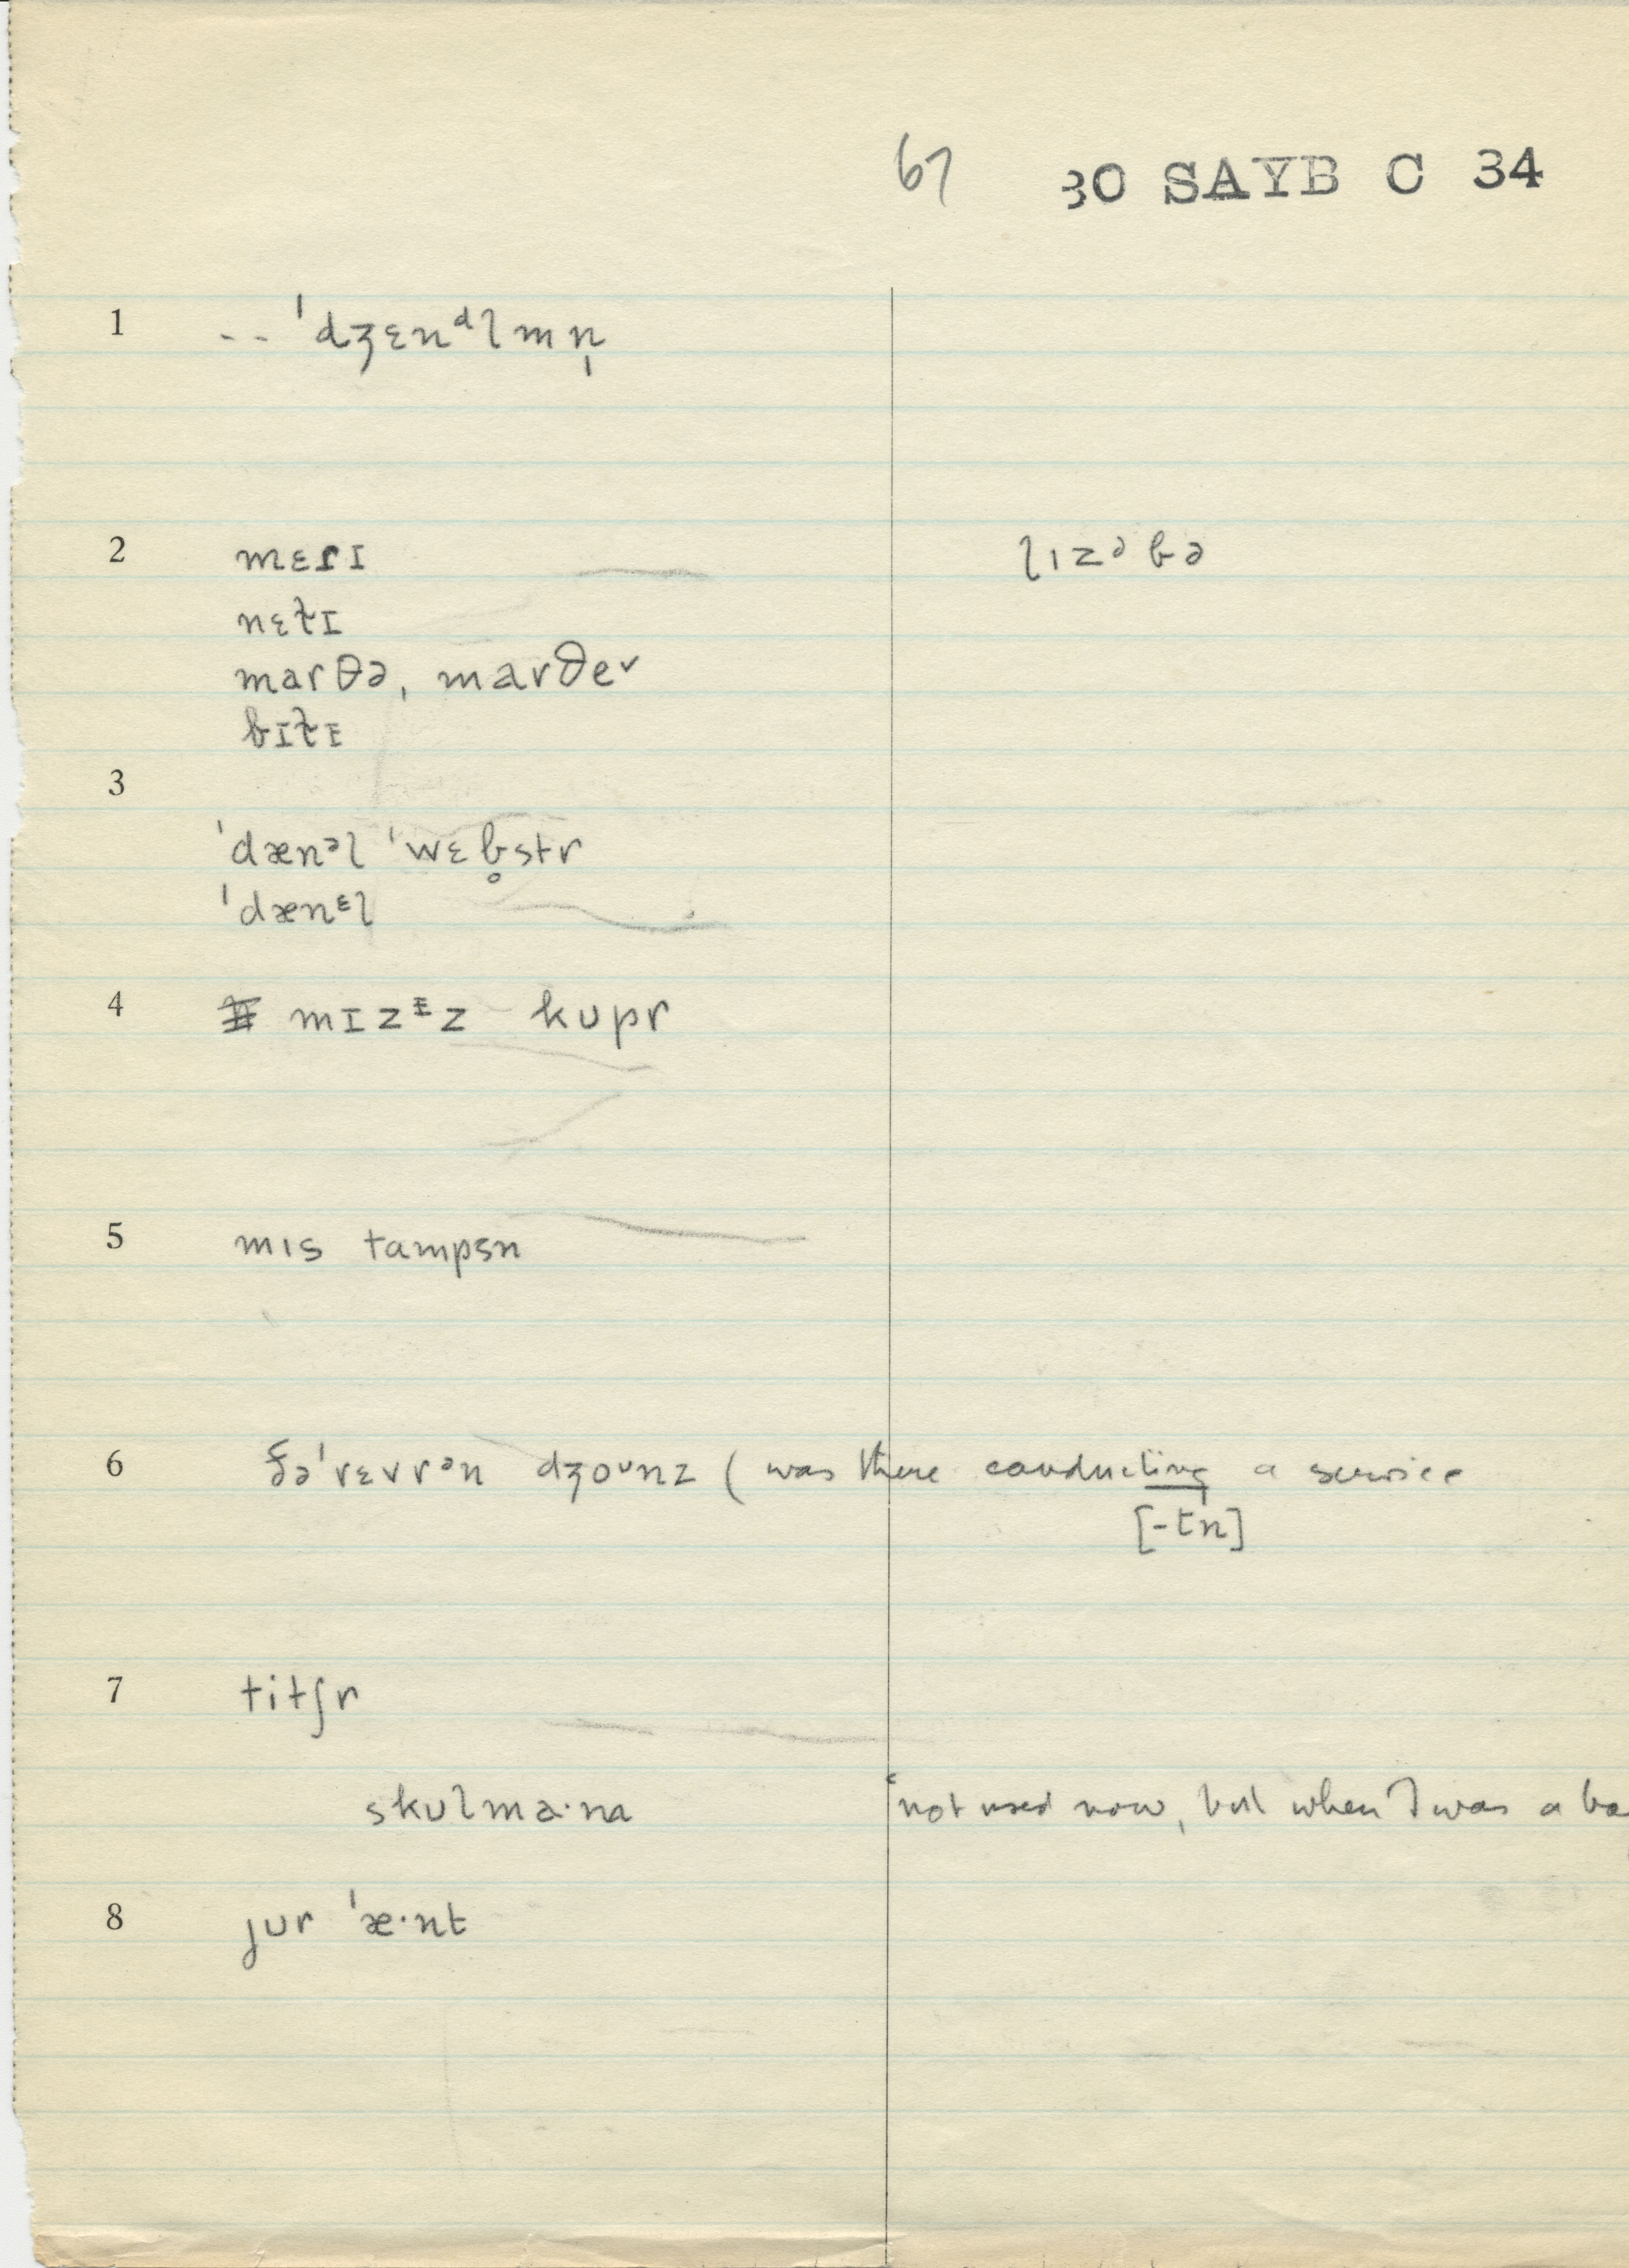 67 30 SAYB C 34
1 -- ˈdʒɛnᵈlmn̩
2 mɛɾɪ lɪzᵊbə
nɛt̬ɪ
marθə, marðeᵛ
bɪt̬ɪ
3
ˈdænᵊl ˈwɛb̥str
ˈdænᵋl
4 mɪzᵻz kupr
5 mɪs tampsn
6 ðəˈrɛvrᵊn dʒoᵘnz ( was there conducting a service
[-tn]
7 titʃr
skulma·na not used now, but when I was a bo
8 jur ˈæ·nt